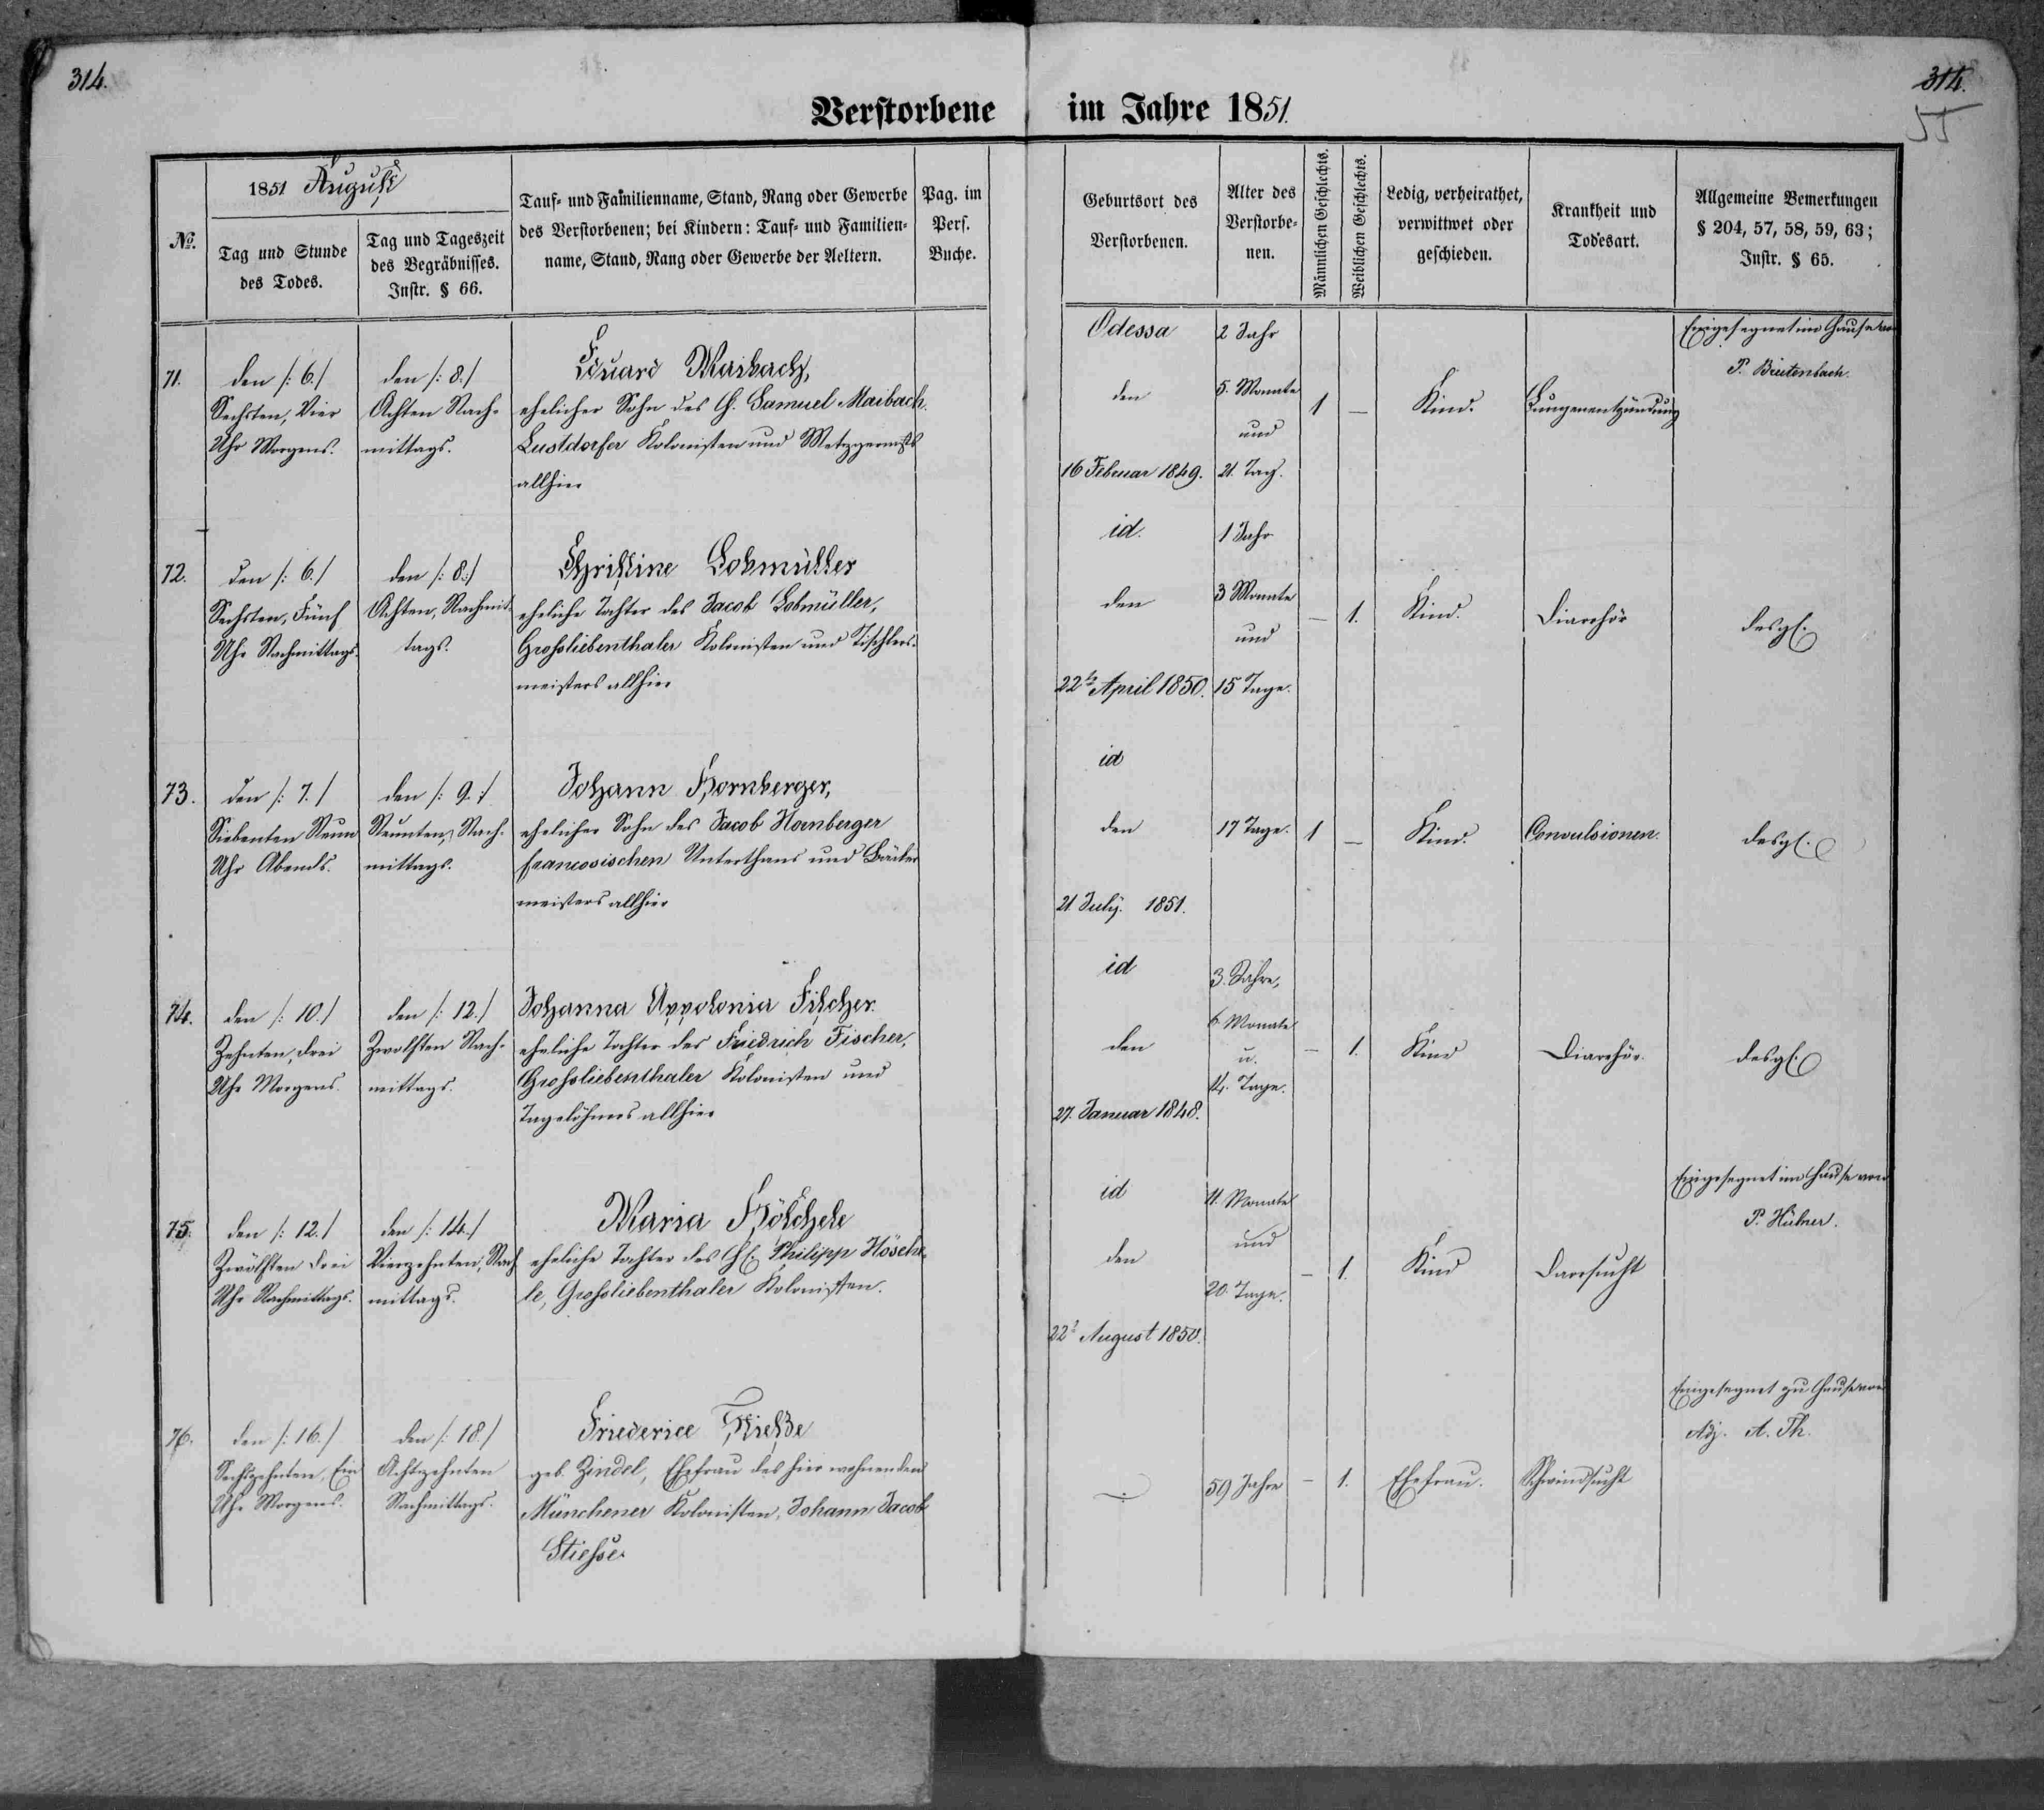 314.
314.
55
Verstorbene im Jahre 1851.
No.
1851 August
Tag und Stunde
des Todes.
Tag und Tageszeit
des Begräbnisses.
Instr. § 66.
Tauf- und Familienname, Stand, Rang oder Gewerbe
des Verstorbenen; bei Kindern: Tauf- und Familien-
name, Stand, Rang oder Gewerbe der Aeltern.
Pag. im
Pers.
Buche.
Geburtsort des
Verstorbenen.
Alter des
Verstorbe-
nen.
Männlichen Geschlechts.
Weiblichen Geschlechts.
Ledig, verheirathet,
verwittwet oder
geschieden.
Krankheit und
Todesart.
Allgemeine Bemerkungen
§ 204, 57, 58, 59, 63;
Instr. § 65.
71.
den /: 6./
Sechsten, Vier
Uhr Morgens.
den /: 8./
Achten Nach-
mittags.
Eduard Maibach,
ehelicher Sohn des H. Samuel Maibach.
Lustdorfer Kolonisten und Metzgermstrs
allhier
Odessa
den
16 Februar 1849.
2 Jahr
5. Monate
und
21. Tag.
1
—
Kind.
Lungenentzündung
Eingesegnet im Hause von
P. Bieitenbach.
72.
den /: 6./
Sechsten, Fünf
Uhr Nachmittags.
den /: 8:/
Achten, Nachmit-
tags.
Christine Lobmüller
eheliche Tochter des Jacob Lobmüller,
Grossliebenthaler Kolonisten und Tischlers-
meisters allhier
id.
den
22te April 1850.
1 Jahr
3 Monate
und
15 Tage.
—
1.
Kind.
Diarrhör
desgl.
73.
den /: 7./
Siebenten Neun
Uhr Abends.
den /: 9:/
Neunten, Nach-
mittags.
Johann Hornberger,
ehelicher Sohn des Jacob Hornberger
francosischen Unterthans und Bäcker
meisters allhier
id
den
21 July. 1851.
17 Tage.
1
—
Kind.
Convulsionen.
desgl.
74.
den /: 10./
Zehnten, drei
Uhr Morgens.
den /: 12./
Zwolften Nach-
mittags.
Johanna Appolonia Fischer.
eheliche Tochter des Friedrich Fischer,
Grossliebenthaler Kolonisten und
Tagelöhners allhier
id
den
27. Januar 1848.
3. Jahre,
6. Monate
u.
14. Tage.
—
1.
Kind
Diarrhör.
desgl.
75.
den /: 12./
Zwölften drei
Uhr Nachmittags.
den /: 14./
Vierzehnten, Nach
mittags.
Maria Höschele
eheliche Tochter des H. Philipp Hösche-
le, Grossliebenthaler Kolonisten.
id
den
22t August 1850.
11. Monate
und
20. Tage.
—
1.
Kind
Darrsucht
Eingesegnet im Hause von
P. Hübner.
76.
den /: 16./
Sechszehnten, Ein
Uhr Morgens.
den /: 18./
Achtzehnten
Nachmittags.
Friederice Stieße
geb. Zindel, Ehefrau des hier wohnenden
Münchener Kolonisten, Johann Jacob
Stiesse.
59 Jahre
—
1.
Ehefrau.
Schwindsucht
Eingesegnet zu Hause von
Adj. A. Th.